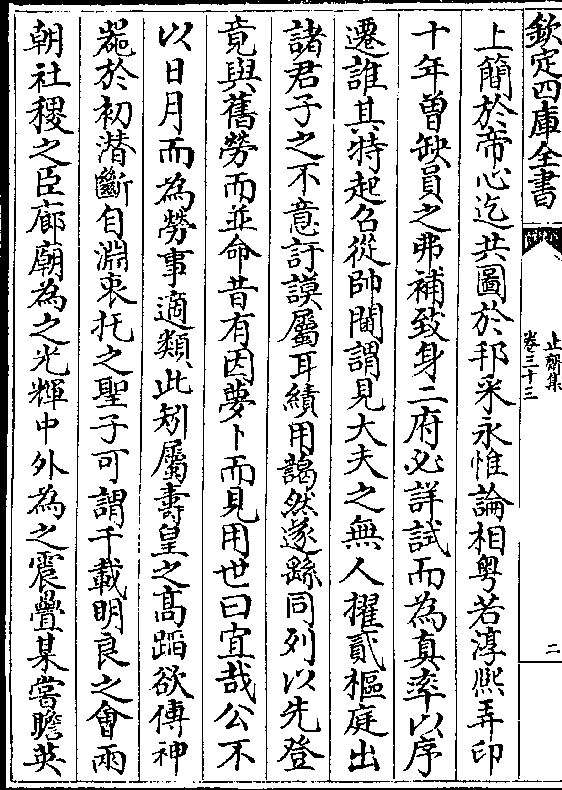 欽定四庫全書
止齋集
卷三十三
二
上簡於帝心迄共圖於邦采永惟論相粤若淳熙弄印
十年曾缺員之弗補致身二府必詳試而為真率以序
遷誰其特起名從帥閫謂見大夫之無人擢貳樞庭出
諸君子之不意訏謨屬耳績用藹然遂繇同列以先登
竟與舊勞而並命昔有因夢卜而見用世曰宜哉公不
以日月而為勞事適類此矧屬壽皇之髙蹈欲傳神
器於初潜斷自淵衷托之聖子可謂千載明良之會兩
朝社稷之臣廊廟為之光輝中外為之震疊某嘗瞻英